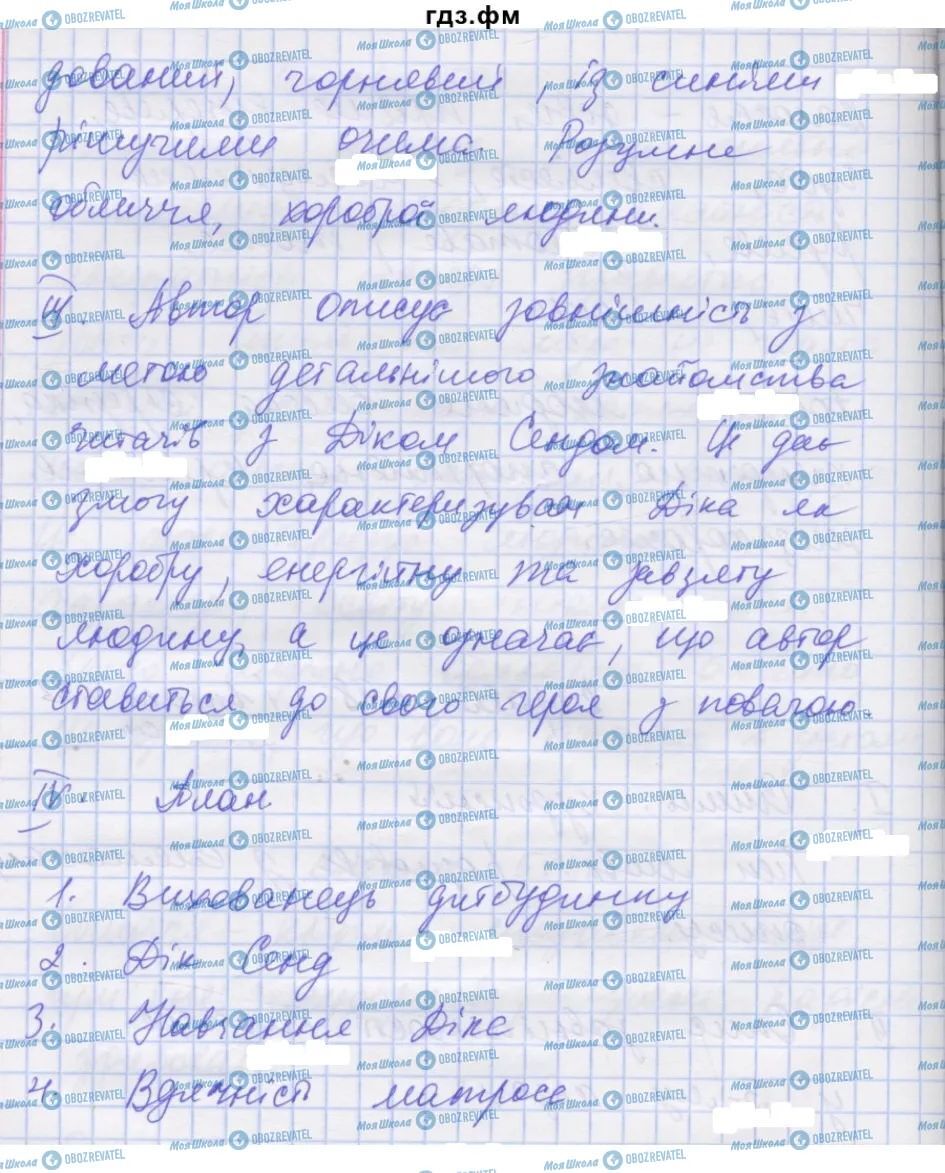 гдз.фм
дований, чорнявий, із синіми
рішучими очима. Розумне
обличчя, хороброї людини.
ІІІ. Автор описує зовнішність з
метою детальнішого знайомства
читачів з Діком Сендом. Це дає
змогу характеризувати Діка як
хоробру, енергійну та завзяту
людину, а це означає, що автор
ставиться до свого героя з повагою.
IV. План
1. Вихованець дитбудинку
2. Дік Сенд
3. Навчання Діка
4. Вдячність матроса
Моя Школа OBOZREVATEL